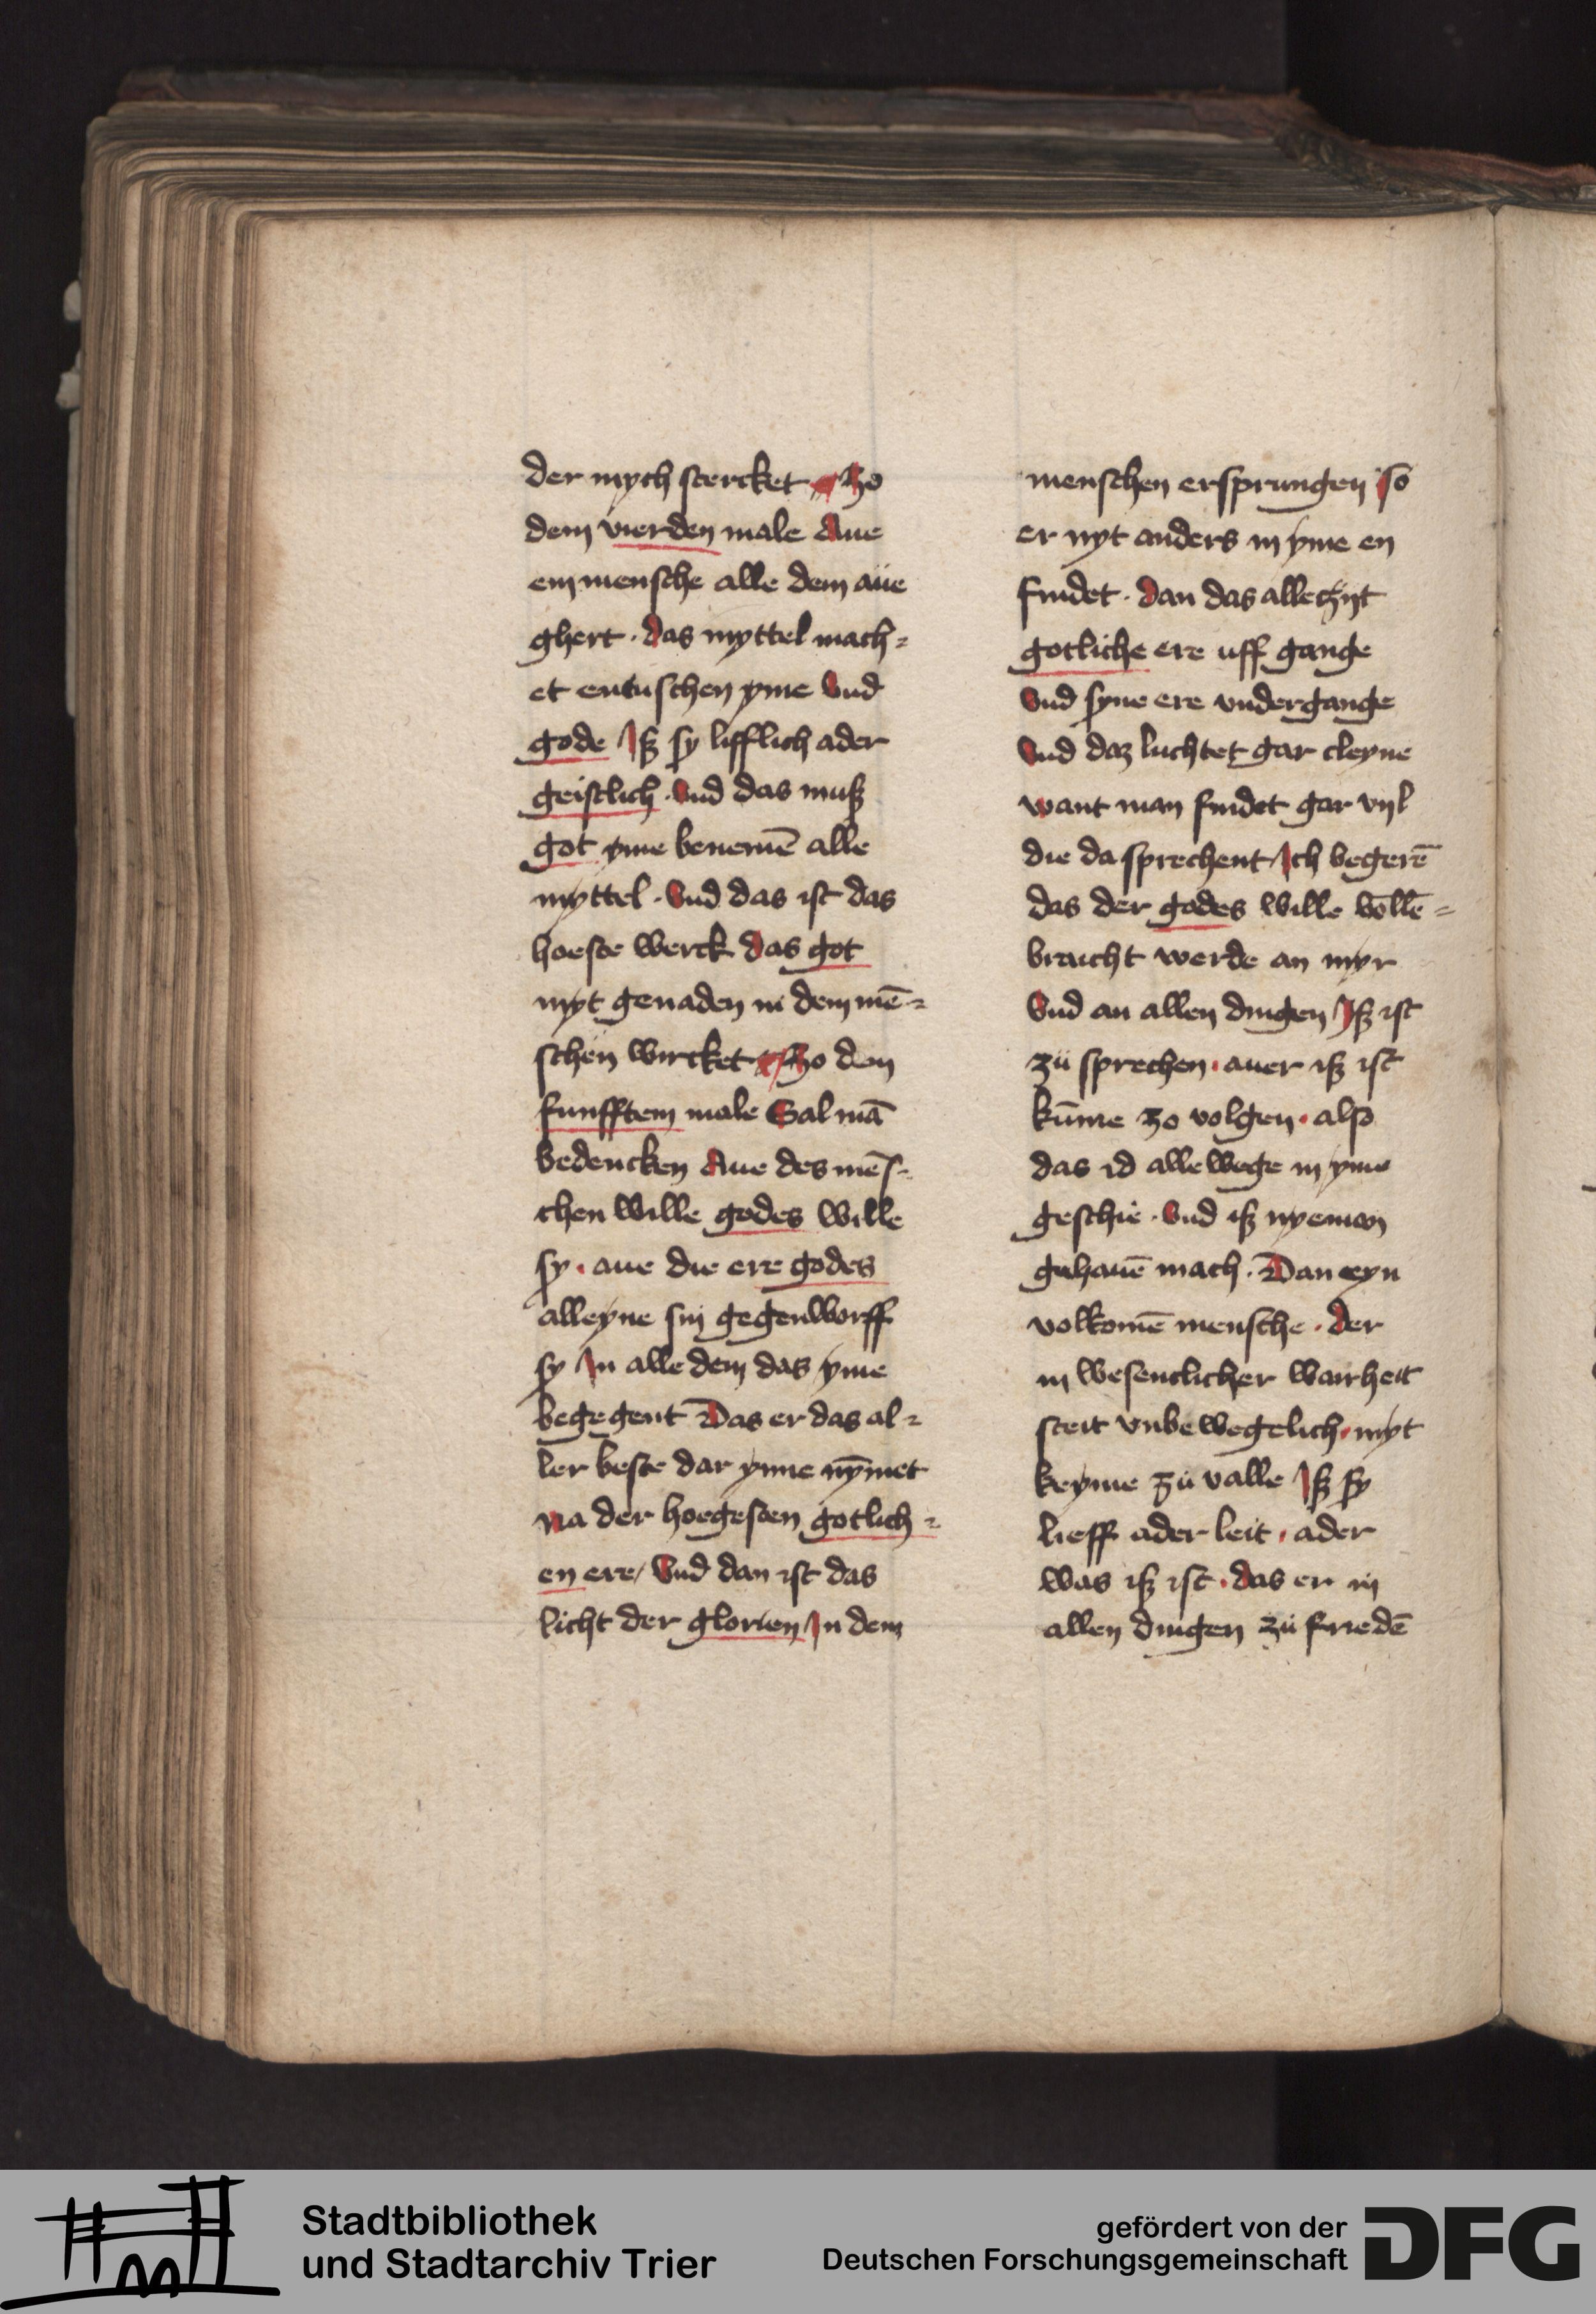 der mych stercket Zo
dem vierden male Aue
ein mensche alle dem aüe
ghert · das myttel mach⸗
et entuschen yme Vnd
gode Jß sy lifflich ader
geistlich · Vnd das muß
got yme benemē alle
myttel · Vnd das ist das
hoeste werck das got
myt genaden in dem mē⸗
schen wircket Zo dem
funfftem male Sal mā
bedencken Aue des mēs⸗
chen wille godes wille
sy · aue die ere godes
alleyne sin gegenworff
sy Jn alle dem das yme
begegent Das er das al⸗
ler beste dar ynne nȳmet
na der hoegesten gotlich⸗
en ere / Vnd dan ist das
licht der glorien Jn dem
menschen ersprungen so
er nyt anders in yme en
findet · dan das alletzijt
gotliche ere uff gange
Vnd syne ere vndergange
Vnd daz luchtet gar cleyne
want man findet gar vijl
die da sprechent Jch begerē
das der godes wille vollē⸗
braicht werde an myr
Vnd an allen dingen Jß ist
zü sprechen · auer iß ist
kūme zo volgen · also
das id alle wege in yme
geschie · Vnd iß nyeman
gehauē mach · Dan eyn
volkomē mensche · der
in wesentlicher wairheit
steit vnbewegelich · myt
keyme zü valle Jß sy
lieff ader leit · ader
was iß ist · das er in
allen dingen zü friedē
Stadtbibliothek
und Stadtarchiv Trier
gefördert von der
Deutschen Forschungsgemeinschaft
DFG